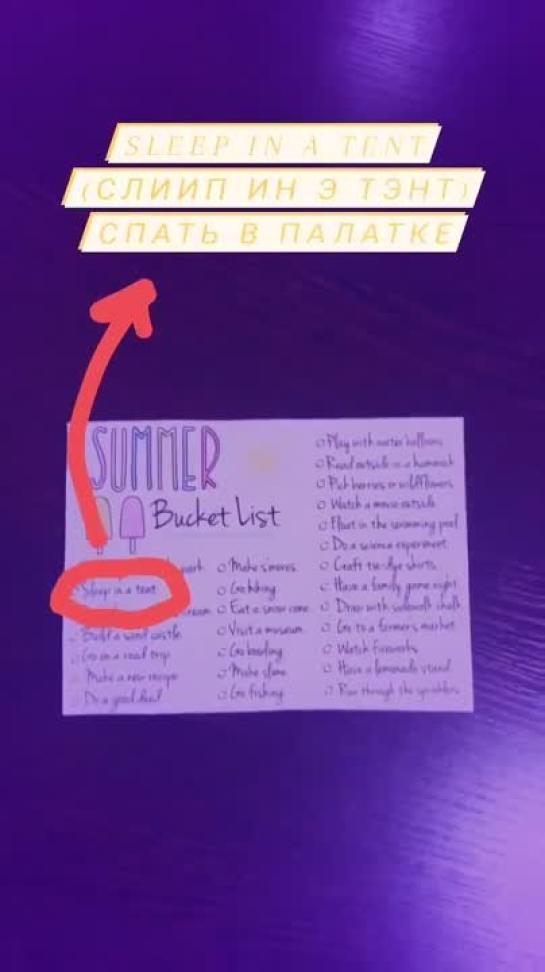 SLEEP IN A TENT
(СЛИИП ИН Э ТЭНТ)
СПАТЬ В ПАЛАТКЕ
SUMMER
Bucket List
Sleep in a tent
Build a sand castle
Go on a road trip
Make a new recipe
Do a good deed
Make s'mores
Go hiking
Eat a snow cone
Visit a museum
Go bowling
Make slime
Go fishing
Play with water balloons
Read outside in a hammock
Pick berries or wildflowers
Watch a movie outside
Float in the swimming pool
Do a science experiment
Craft tie-dye shirts
Have a family game night
Draw with sidewalk chalk
Go to a farmer's market
Watch fireworks
Have a lemonade stand
Run through the sprinklers